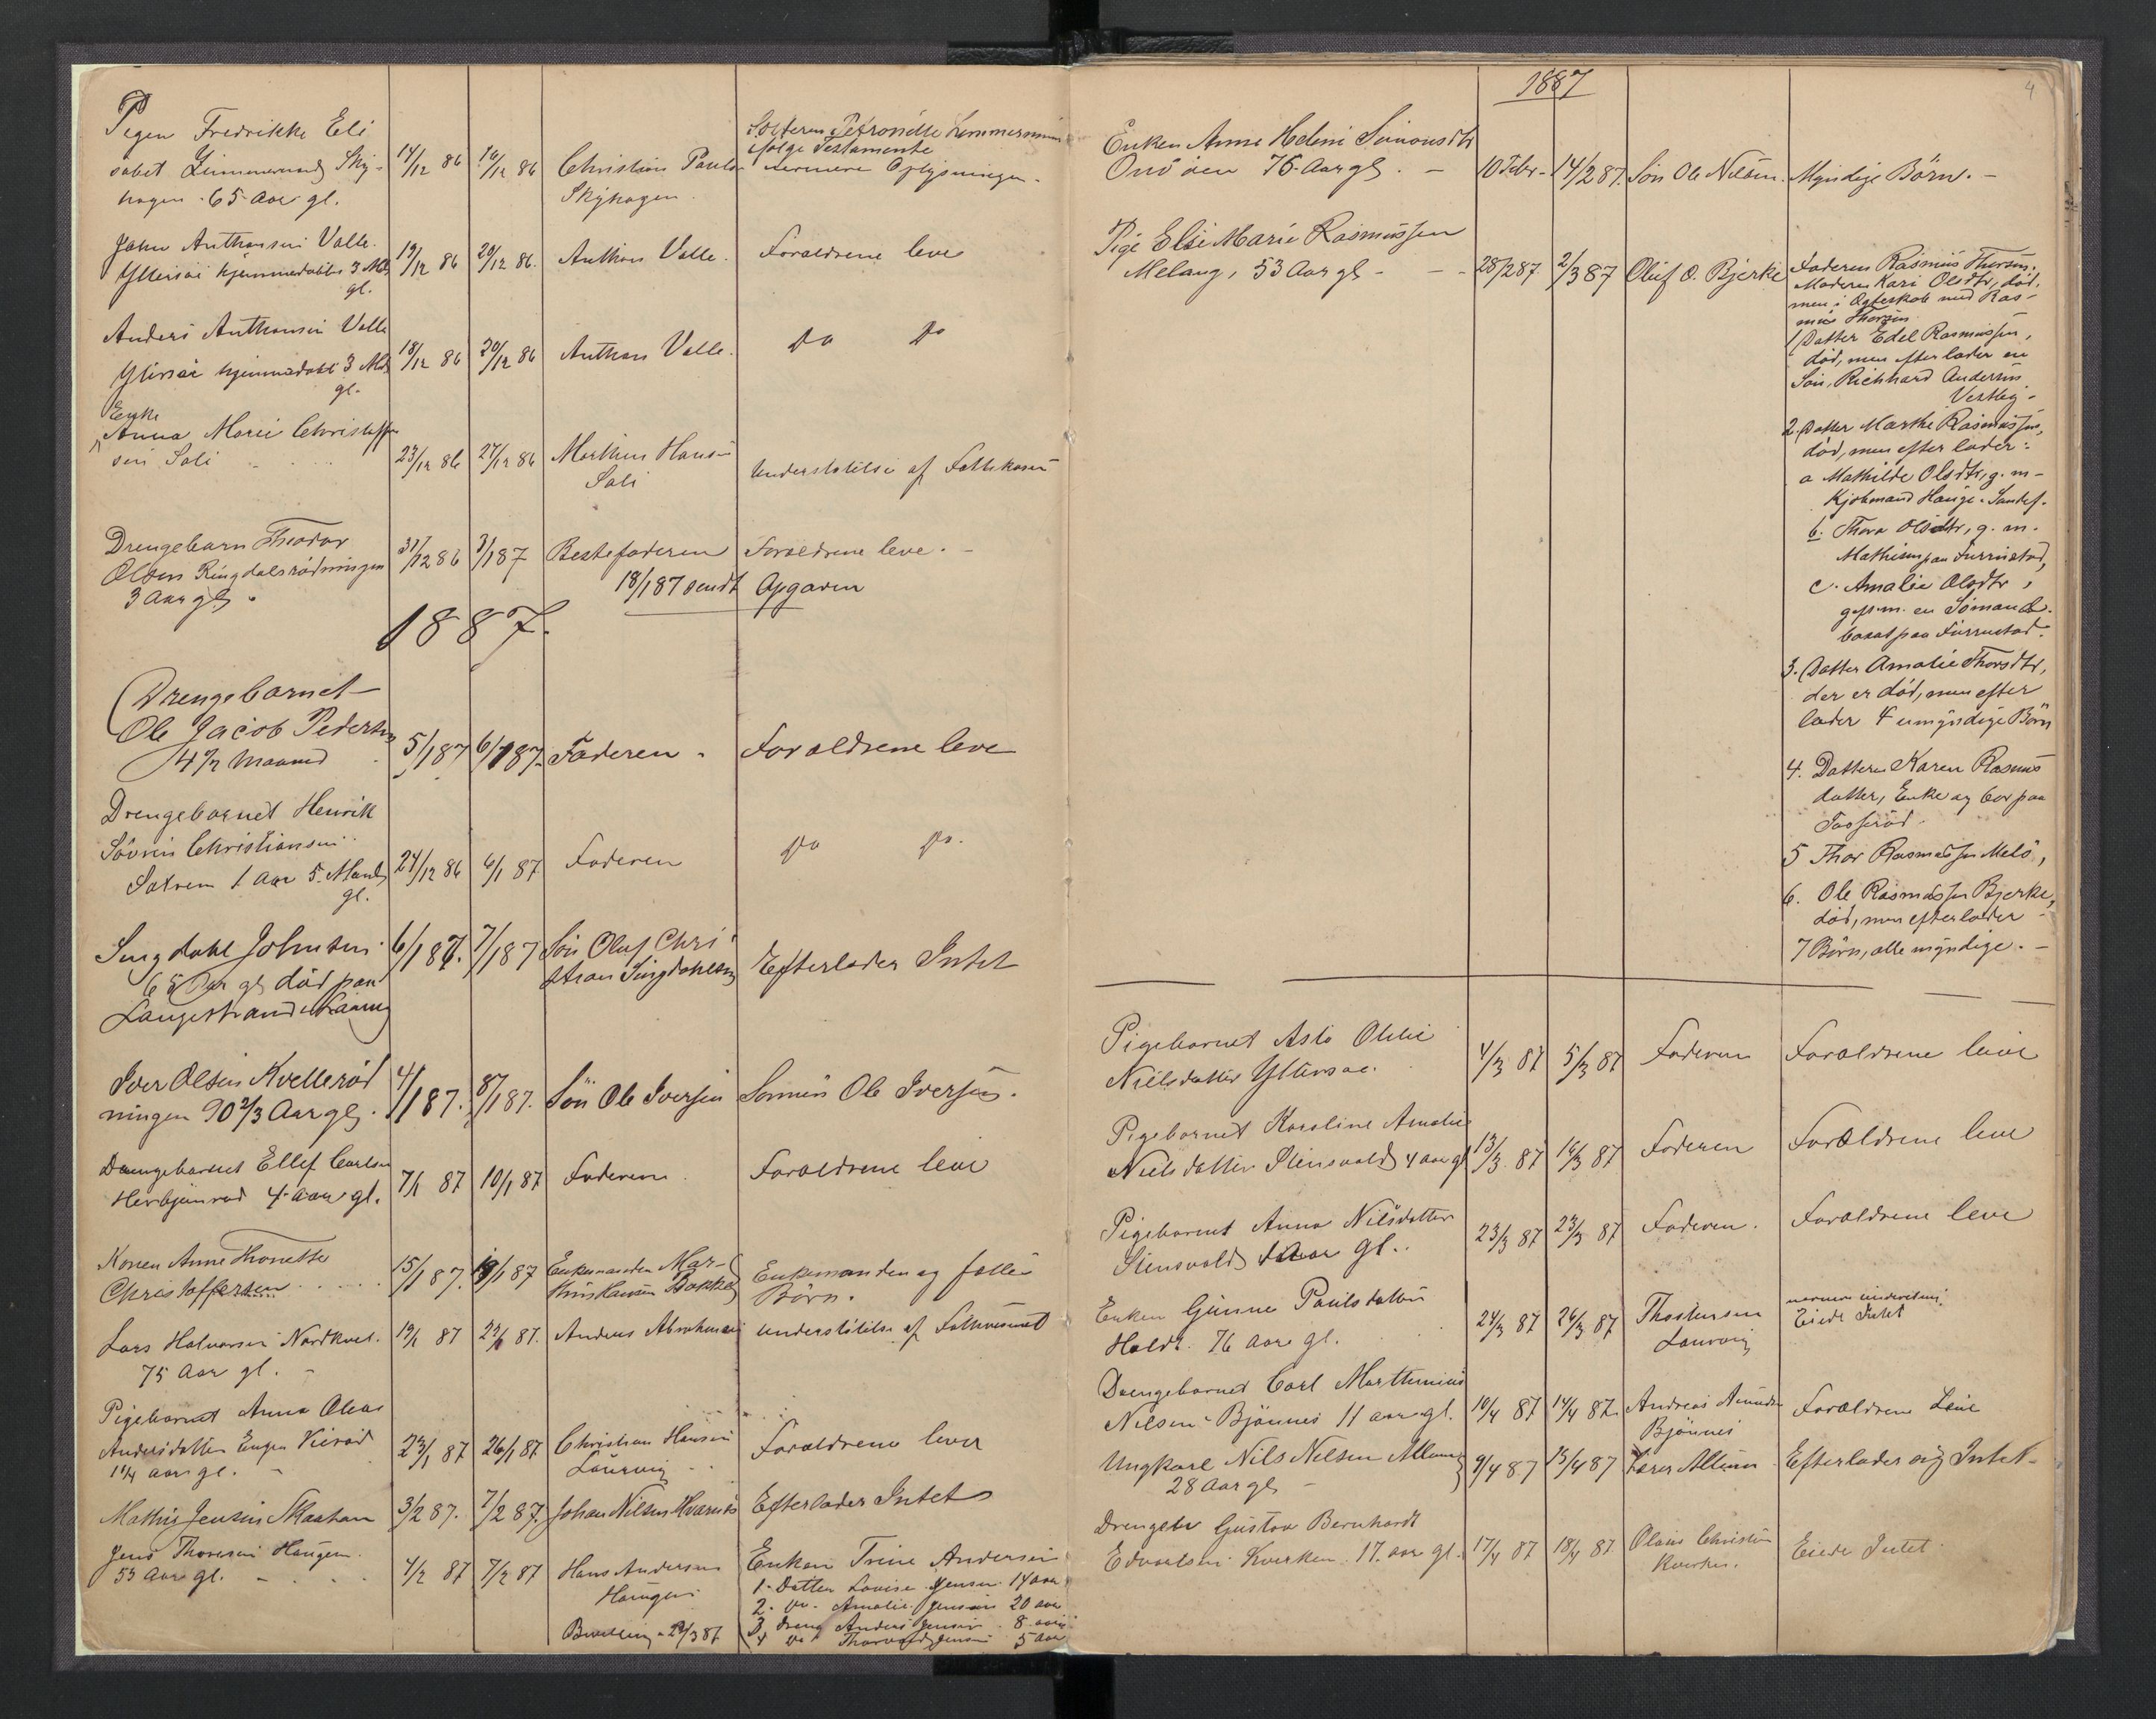 Pigen Fredrikke Eli
sabet Zimmermand Sky-
hagen - 65 Aar gl.
14/12 86
16/12 86
Christian Pauls
Skyhagen
Søsteren Petronelle Zimmermann
ifølge Testamente
nærmere Oplysninger.
John Anthonsen Valle
hjemmedøbt 3 Md.
gl.
19/12 86
20/12 86.
Anthon Valle.
Forældrene leve
Anders Anthonsen Valle
hjemmedøbt 3 Md
gl.
18/12 86
20/12 86
Anthon Valle.
Do Do
Enke
Anna Marie Christoffer
sen Soli
23/12 86
27/12 86
Marthin Hans-
Soli
Understøtelse af Fattikassen
Drengebarn Theodor
Olsen Ringdalsrødningen
3 Aar gl.
31/12 86
3/1 87
Bestefaderen
Foraeldrene leve. -
18/1 87 sendt Opgaven
1887.
Drengebarnet
Ole Jacob Pedersen
4 1/2 Maaned
5/1 87
6/1 87.
Faderen.
Foraeldrene leve
Drengebarnet Henrik
Søvrin Christiansen
1 Aar 5 Maned
gl.
24/12 86
6/1 87
Faderen
Do Do.
Singdahl Johnsen
65 Aar gl død paa
Langestrand Laurvig
6/1 87.
7/1 87
Søn Oluf Chri
stian Singdahlsen
Efterlader Intet
Iver Olsen Kvellerød
ningen 90 2/3 Aar gl.
4/1 87.
8/1 87.
Søn Ole Iversen
Sønnen Ole Iversen.
Drengebarnet Ellef Carlsen
4 Aar gl.
7/1 87
10/1 87
Faderen
Foraeldrene leve
Konen Anne Thonette
Christoffersen
15/1 87.
19/1 87
Enkemanden Mar-
thins Hansen Bakke
Enkemanden og fælles
Børn.
Lars Halvorsen Nordkvel.
75 Aar gl. -
19/1 87
Anders Abrahamsen
understøtelse af Fatvæsenet
Pigebarnet Anna Olea
Andersdatter Engen Vierød
1 1/4 Aar gl. -
23/1 87
26/1 87
Christian Hansen
Laurvig
Foraeldrene lever
Mathis Jensen Skaatan
3/2 87.
7/2 87.
Johan Nilsen Kvarnes
Efterlader Intet
Jens Thoresen Haugen
53 Aar gl. -
4/2 87
7/2 87
Hans Andersen
Haugen
Bevilling 29/3 87
Enken Trine Andersen
1. Datter Lovise Jensen 14 aar
2. Do. Amalie Jensen 20 aar
3. Dreng Anders Jensen 8 aar
4 Do Thorvald Jensen 5 Aar
1887
4
Enken Anne Helene Simonsdtr
Onsøien 76 Aar gl. -
10 Febr.
14/2 87.
Søn Ole Nilsen.
Myndige Børn. -
Pige Elsi Marie Rasmussen
Melang, 53 Aar gl -
28/2 87.
2/3 87
Oluf O. Bjerke
Faderen Rasmus Thorsen.
Moderen Kari Olsdtr, død,
men i Ægteskab med Ras-
mus Thorsen
1 Datter Edel Rasmussen,
død, men efterlader en
Søn, Richard Andersen
Vestby -
2. Datter Marthe Rasmussen,
død, men efterlader:
a Mathilde Olsdtr, g. m-
Kjøbmand Hauge i Sandef.
b. Thora Olsdtr, g. m.
Mathisen paa Furrustad,
c. Amalie Olsdtr,
gift m. en Sømand
bosat paa Furrustad.
3. Datter Amalie Thorsdtr,
der er død, men efter
lader 4 umyndige Børn
4. Datteren Karen Rasmus
datter, Enke og bor paa
Tasserød.
5 Thor Rasmussen Melø,
6. Ole Rasmussen Bjerke,
død, men efterlader
7 Børn, alle myndige. -
Pigebarnet Asta Olilie
Nielsdatter
4/3 87
5/3 87
Faderen
Foraeldrene leve
Pigebarnet Karoline Amalie
Nielsdatter Stensvold 4 aar gl
13/3 87
16/3 87
Faderen
Forældrene leve
Pigebarnet Anna Nilsdatter
Stensvold Aar gl.
23/3 87
23/3 87
Faderen.
Foraeldrene leve
Enken Gunne Paulsdatter
Holdt. 76 Aar gl.
24/3 87
26/3 87
Thostensen
Laurvig
Eiede Intet
Drengebarnet Carl Marthinius
Nilsen Bjønnes 11 aar gl.
10/4 87
14/4 87.
Andreas Amundsen
Bjønnes
Foraeldrene Leve
Ungkarl Nils Nilsen Allum
28 Aar gl -
9/4 87
15/4 87
Lærer Allum
Efterlader sig Intet -
Drengebr Gustav Bernhardt
Edvardsen Kverken 17. aar gl.
17/4 87
18/4 87
Olaus Christian
Kverken.
Eiede Intet.